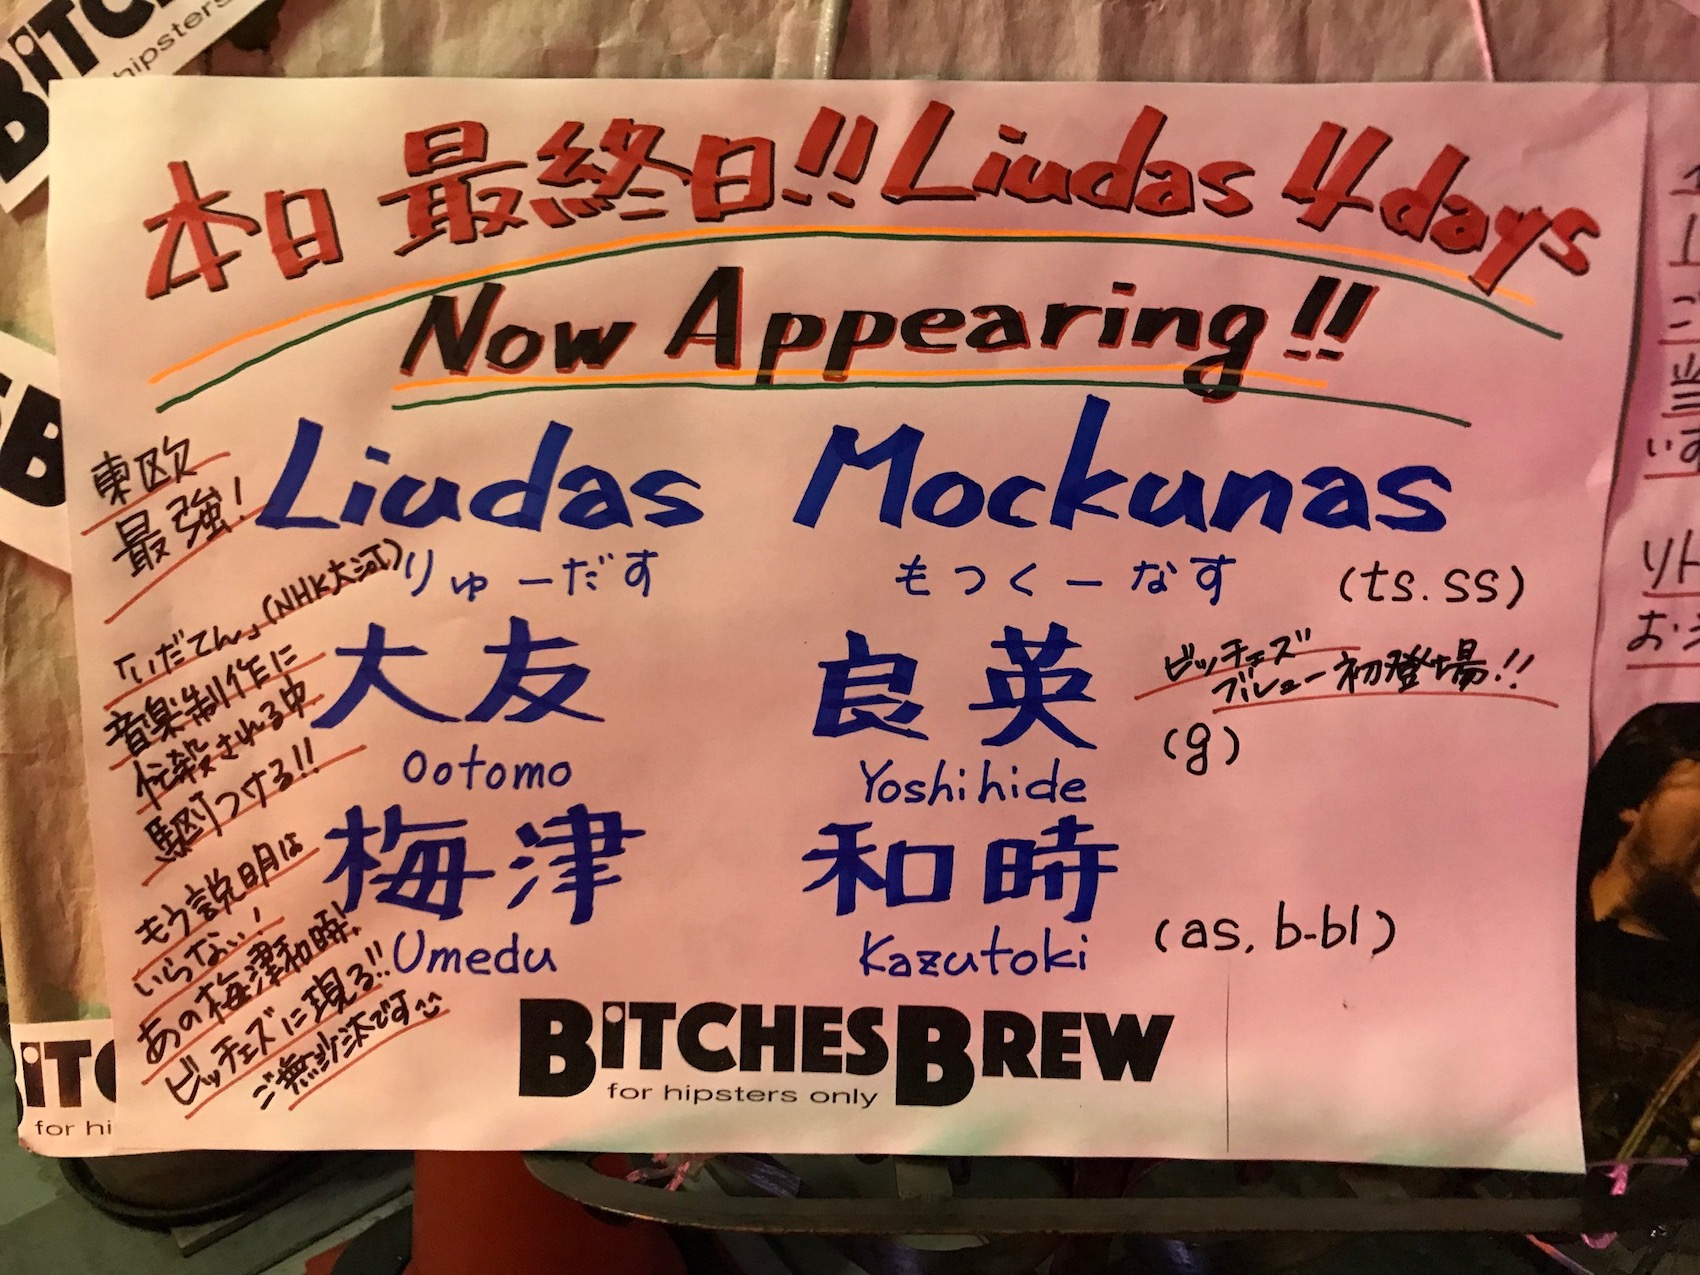 本日 最終日!! Liudas 4days
Now Appearing!!
東欧
最強!
Liudas Mockunas
りゅーだす もつくーなす (ts. ss)
「いだてん」(NHK大河)
音楽制作に
忙殺される中
駆けつける!!
大友 良英
ビッチェズ
ブリュー初登場!!
(g)
Ootomo Yoshihide
もう説明は
いらない!
あの梅津和時!
ビッチェズに現る!!
ご無沙汰です^^
梅津 和時
Umedu Kazutoki (as, b-bl)
BITCHES BREW
for hipsters only
BITC
hipsters
SB
BITC
for hi